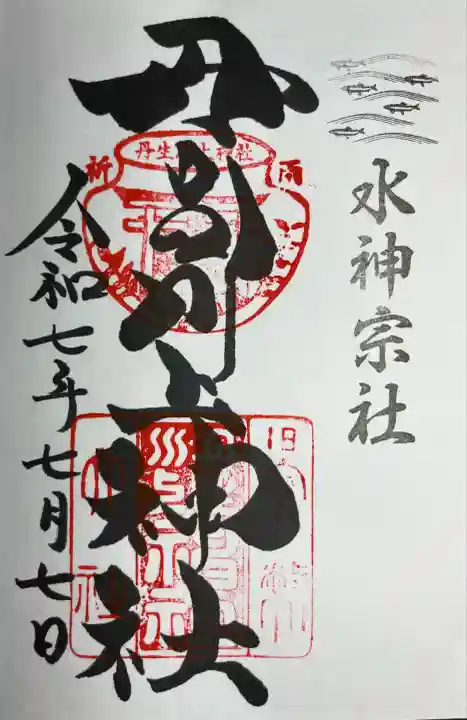 水神宗社
丹生川上神社
丹生川上神社
祈
雨
令和七年七月七日